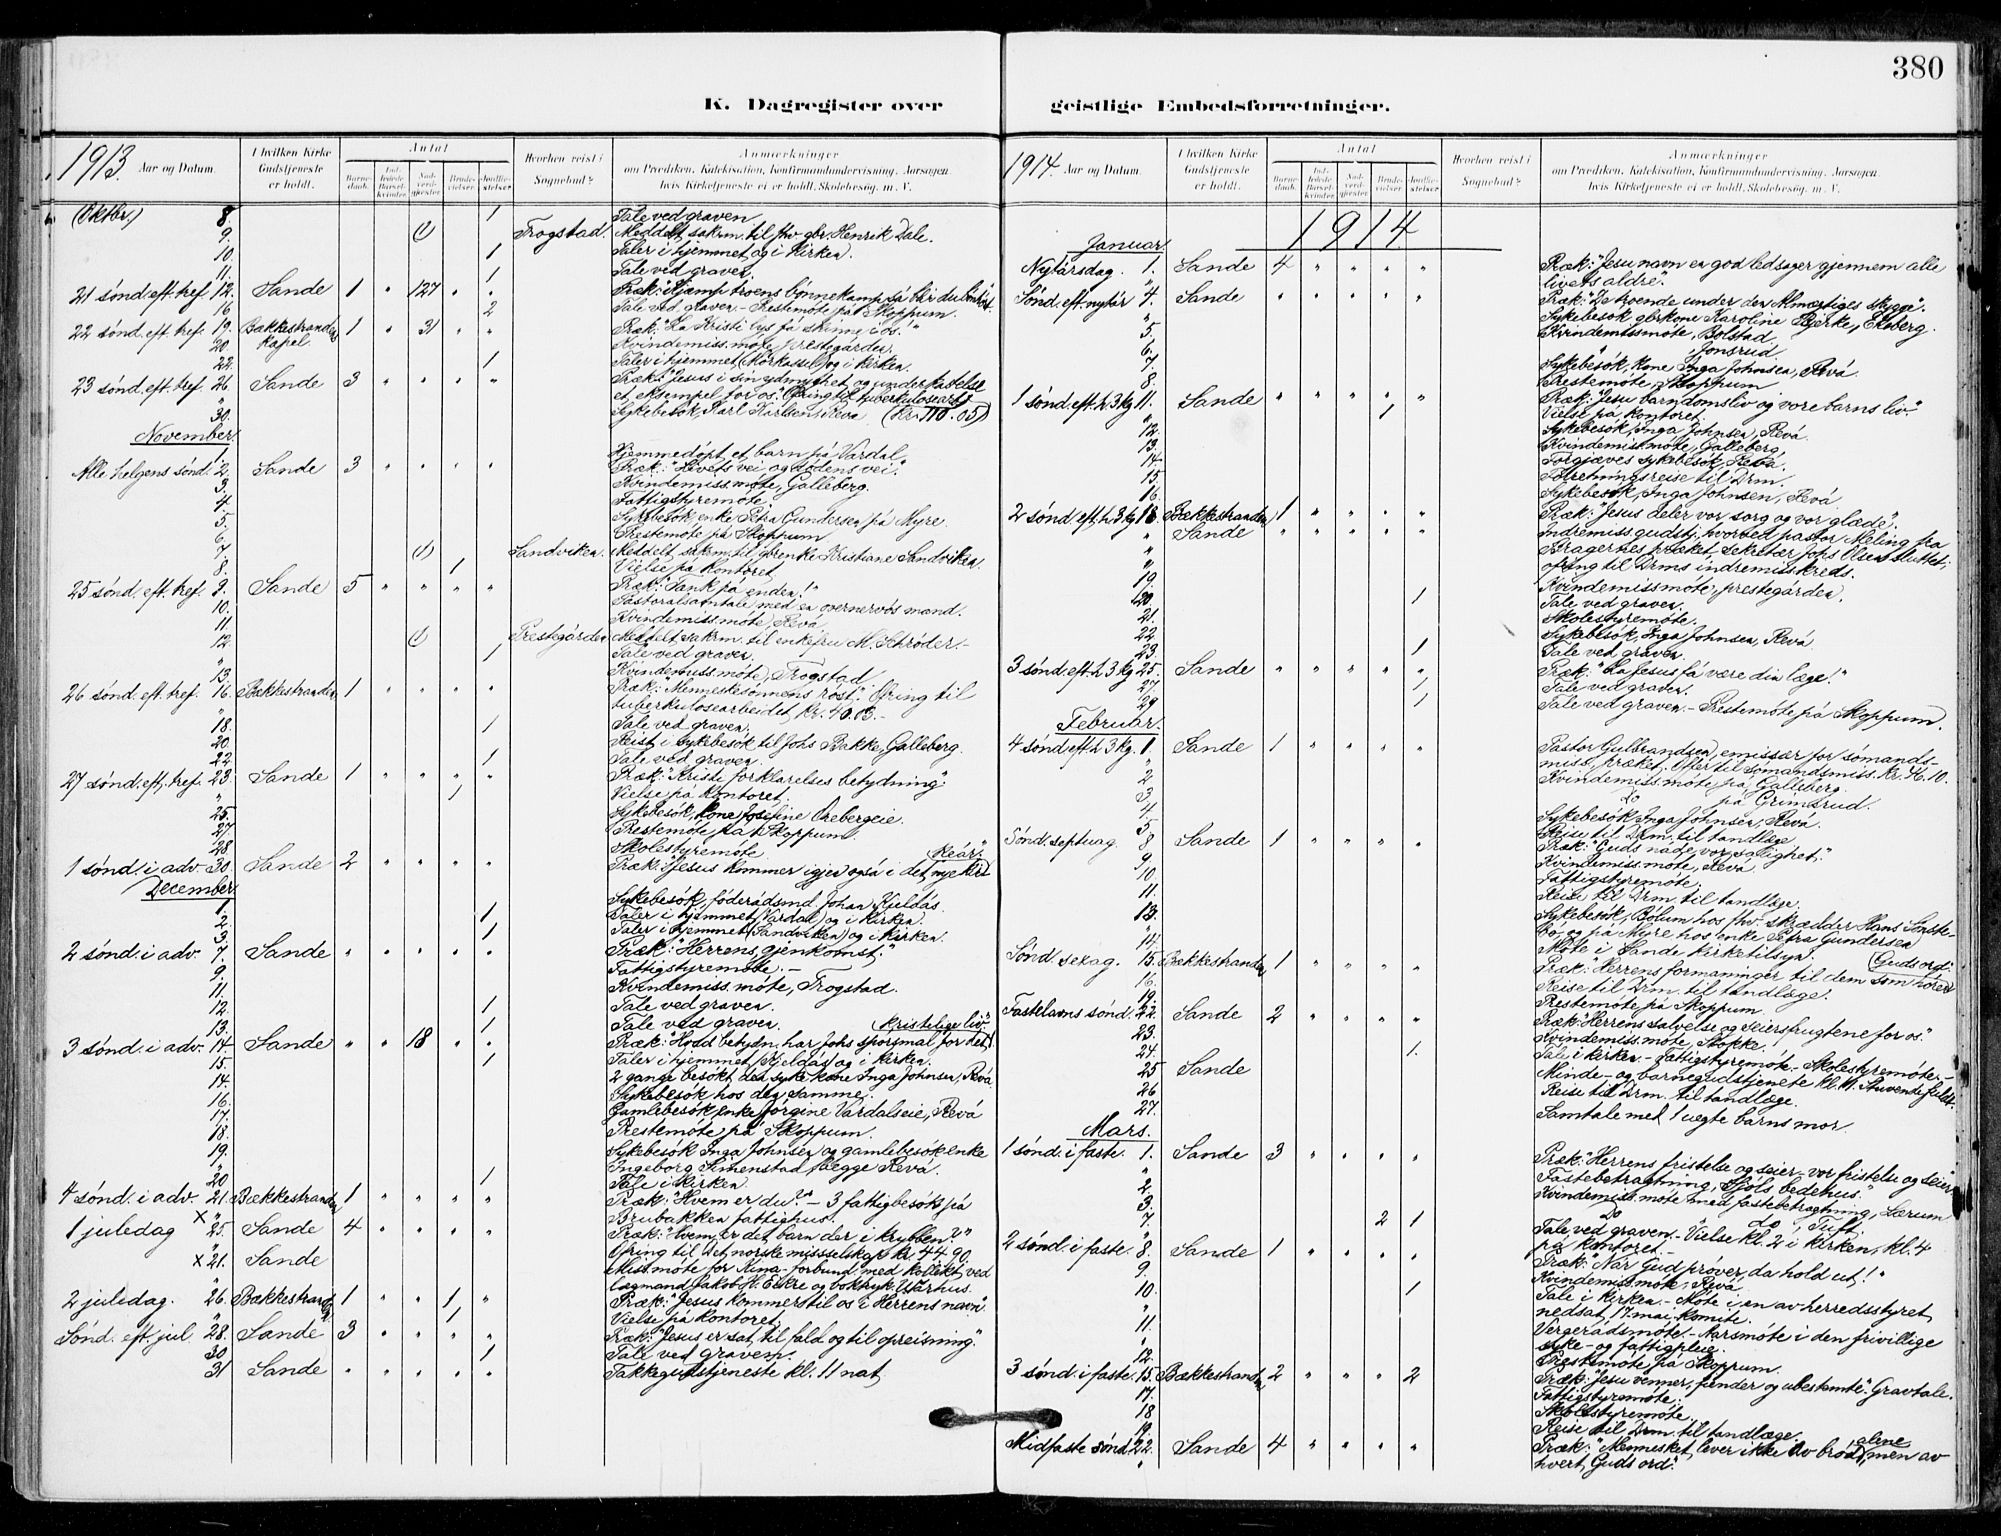 380
K. Dagregister over geistlige Embedsforretninger.
1913. Aar og Datum. I hvilken Kirke Gudstjeneste er holdt. Antal Barnedaab. Indledede Barselkvinder. Nadverdgjester. Brudevielser. Jordfæstelser. Hvorhen reist i Sognebud? Anmærkninger om Prædiken. Katekisation. Konfirmandundervisning. Aarsagen, hvis Kirketjeneste ei er holdt. Skolebesøg. m. V.
(Oktbr.) 8. 1 Tale ved graven
9. (1) Trogstad. Meddelt sakrm. til fhv. gbr. Henrik Dale.
10. 1 Taler i hjemmet og i Kirken.
11. 1 Tale ved graven.
21 sønd. eft. tref. 12. Sande 1 " 127 " " Præk: "Kjæmp troens bønnekamp så blir du bønhørt"
16. 2 Tale ved graven. - Prestemøte på Skoppum.
22 sønd. eft. tref. 19. Bækkestranden kapel 1 " 31 " " Præk: "La Kristi lys få skinne i os!"
20. Kvindemiss.møte, prestegården.
22. 1 Taler i hjemmet (Mørkassel) og i kirken.
23 sønd. eft. tref. 26 Sande 3 " " " " Præk: "Jesus i sin ydmyghet og underkastelse
" et eksempel for os." Ofring til tuberkulosearb.
30. Sykebesøk, Karl Karlsen, Revå (Kr. 110.05)
November.
1. Hjemmedøpt et barn på Vardal
Alle helgens sønd. 2. Sande 3 " " " " Præk: "Livets vei og dødens vei".
3. Kvindemiss.møte, Galleberg.
4. Fattigstyremøte
5. Sykebesøk, enke Petra Gundersen, på Myre.
6. Prestemøte på Skoppum
7. (1) Sandviken. Meddelt sakrm. til gbrenke Kristiane Sandviken.
8. 1 Vielse på kontoret
25 sønd. eft. tref. 9. Sande 5 " " " " Præk: "Tænk på enden!"
10. Pastoralsamtale med en overnervøs mand.
11. Kvindemiss.møte, Revå
12. (1) Prestegården Meddelt sakrm. til enkefru M. Schrøder. -
" 1 Tale ved graven.
13. Kvindemiss.møte, Trogstad
26 sønd. eft. tref. 16. Bækkestranden 1 " " " " Præk: "Menneskesønnens røst". Ofring til
" tuberkulosearbeidet, Kr. 40.13. -
18. 1 Tale ved graven.
20. Reist i sykebesøk til Johs Bakke, Galleberg.
22 1 Tale ved graven.
27 sønd. eft. tref. 23. Sande 1 " " " " Præk: "Kristi forklarelses betydning".
" 1 Vielse på kontoret.
25. Sykebesøk, kone Josefine Orebergeie.
27. Prestemøte på Skoppum
28 Skolestyremøte.
1 sønd. i adv. 30. Sande 2 " " " " Præk: "Jesus kommer igjen også i det nye kirkeår"
December.
1. Sykebesøk, føderådsmd. Johan Kjeldås.
2. 1 Taler i hjemmet (Vardal) og i kirken.
3. 1 Taler i hjemmet (Sandviken) og i kirken.
2 sønd. i adv. 7. Sande " " " " " Præk: "Herrens gjenkomst."
9. Fattigstyremøte. -
11. Kvindemiss.møte, Trogstad.
12. 1 Tale ved graven.
13. 1 Tale ved graven. kristelige liv."
3 sønd. i adv. 14. Sande " " 18 " " Præk: "Hvad betydn. har Johs spørsmål for det
15. 1 Taler i hjemmet (Kjeldås) og i kirken.
14. 2 gange besøkt den syke kone Inga Johnsen, Revå
16. Sykebesøk hos den samme.
17. Gamlebesøk enke Jørgine Vardalseie, Revå
18. Prestemøte på Skoppum.
19. Sykebesøk Inga Johnsen og gamlebesøk enke
" Ingeborg Simenstad, begge Revå.
20 1 Tale i kirken
4 sønd. i adv. 21. Bækkestranden 1 " " " " Præk: "Hvem er du?" - 3 fattigbesøk på
× " Brubakken fattighus.
1 juledag 25. Sande 4 " " " " Præk: "Hvem er det barn der i krybben?"
" Ofring til det norske misselskap kr 44.90
× 21. Sande Miss.møte for Kina-forbund. med kollekt ved
" lægmand Jakob H. Eikre og boktryk. Usarhus.
2 juledag. 26. Bækkestranden 1 " " 1 " Præk: "Jesus kommer til os i Herrens navn".
" 1 Vielse på kontoret.
Sønd. eft. jul. 28. Sande 3 " " " " Præk: "Jesus er sat til fald og til opreisning".
30 1 Tale ved graven.
31 Sande " " " " " Takkegudstjeneste kl. 11 nat
1914. Aar og Datum. I hvilken Kirke Gudstjeneste er holdt. Antal Barnedaab. Indledede Barselkvinder. Nadverdgjester. Brudevielser. Jordfæstelser. Hvorhen reist i Sognebud? Anmærkninger om Prædiken. Katekisation. Konfirmandundervisning. Aarsagen, hvis Kirketjeneste ei er holdt. Skolebesøg. m. V.
1914
Januar.
Nytårsdag. 1. Sande 4 " " " " Præk: "Jesu navn en god ledsager gjennem alle
" livets aldre".
Sønd. eft. nytår 4. Sande " " " " " Præk: "De troende under den Almægtiges skygge".
" Sykebesøk gbrkone Karoline Bjerke, Ekeberg.
5. Kvindemissmøte, Bolstad.
6. " Jonsrud
7. Sykebesøk, kone Inga Johnsen, Revå.
8. Prestemøte, Skoppum
1 sønd. eft. h. 3 kg. 11. Sande " " " " " Præk: "Jesu barndomsliv og vore barns liv."
" 1 Vielse på kontoret.
12. Sykebesøk, Inga Johnsen, Revå
13. Kvindemissmøte, Galleberg
14. Forgjæves sykebesøk, Revå.
15. Forretningsreise til Drm.
16. Sykebesøk, Inga Johnsen, Revå
2 sønd. eft. h. 3 kg. 18. Bækkestranden 1 " " " " Præk: "Jesus deler vor sorg og vor glæde".
" Sande " " " " " Indremiss.gudstj., hvorved pastor Meling fra
" Bragernes præket, sekretær Johs Olsen sluttet;
" ofring til Drms indremisskreds.
19. Kvindemissmøte, prestegården.
20. 1 Tale ved graven.
21. Skolestyremøte.
22 Sykebesøk, Inga Johnsen, Revå
23 1 Tale ved graven
3 sønd. eft. h. 3 kg. 25. Sande " " " " " Præk: "La Jesus få være din læge!"
27. 1 Tale ved graven.
29 1 Tale ved graven. - Prestemøte på Skoppum.
Februar.
4 sønd. eft. h. 3 kg. 1. Sande 1 " " " " Pastor Gulbrandsen, emissær for sømands-
" miss. præket. Ofter til sømandsmiss. kr. 46.10.
2 Kvindemiss.møte på Galleberg.
3. do på Grimsrud.
4. Sykebesøk Inga Johnsen, Revå.
5 Reise til Drm. til tandlæge
Sønd. septuag. 8 Sande 1 " " " " Præk: "Guds nåde, vor salighet."
9. Kvindemiss.møte, Revå
10. Fattigstyremøte.
11. Reise til Drm. til tandlæge.
13. Sykebesøk, Bølum hos fhv. skrædder Hans Smste-
" bø, og på Myre hos enke Petra Gundersen
14. Møte i Sande kirketilsyn.
Sønd. sexag. 15. Bækkestranden 1 " " " " Præk: "Herrens formaninger til dem som hører Guds ord."
16. Reise til Drm. til tandlæge.
19. Prestemøte på Skoppum.
Fastelavns sønd. 22. Sande 2 " " " " Præk: "Herrens salvelse og seiersfrugtene for os."
23. Kvindemiss.møte, Stokke.
24. 1. Tale i kirken. - Fattigstyremøte. - Skolestyremøte. -
25 Sande Minde- og barnegudstjeneste kl. 11.
26 Reise til Drm. til tandlæge.
27. Samtale med 1 uegte barns mor.
Mars.
1 sønd. i faste. 1. Sande 3 " " " " Præk: "Herrens fristelse og seier - vor fristelse og seier"
" Fastebetragtning, Kjøls bedehus.
2. Kvindemiss.møte med fastebetragtning, Lærum
3. do do, Tuft.
7. 2 1 Tale ved graven. - Vielse kl. 2 i kirken, kl. 4
" på kontoret. -
2 sønd. i faste. 8. Sande 1 " " " " Præk: "Når Gud prøver, da hold ut!"
9. Kvindemiss.møte, Revå
10. 1 Tale i kirken. - Møte i en av herredsstyret
" nedsat, 17. mai-komite.
11. Vergerådsmøte. - Aarsmøte i den frivillige
" syke- og fattigpleie.
12. Prestemøte på Skoppum.
3 sønd. i faste. 15. Bækkestranden 2 " " " 2 Præk: "Jesu venner, fiender og ubestemte". Gravtale.
17. Fattigstyremøte.
18 Skolestyremøte.
19. Reise til Drm. til tandlæge.
Midfaste sønd. 22. Sande 4 " " " " Præk: "Mennesket lever ikke av brød alene, men av
" hvert Guds ord".